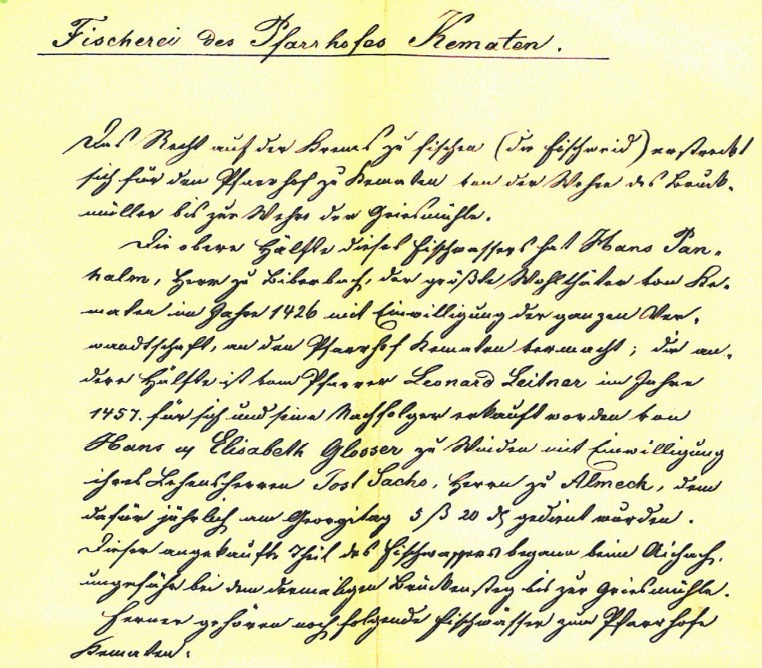 Fischerei des Pfarrhofes Kematen.
Das Recht auf der Krems zu fischen (die Fischweid) erstreckt
sich für den Pfarrhof zu Kematen von der Wehre des Bruck-
müller bis zur Wehre der Griesmühle.
Die obere Hälfte dieses Fischwassers hat Hans Pan-
halm, Herr zu Biberbach, der größte Wohlthäter von Ke-
maten im Jahre 1426 mit Einwilligung der ganzen Ver-
wandtschaft, an den Pfarrhof Kematen vermacht; die an-
dere Hälfte ist vom Pfarrer Leonard Leitner im Jahre
1457. für sich und seine Nachfolger erkauft worden von
Hans & Elisabeth Glosser zu Winden mit Einwilligung
ihres Lehensherren Jost Sachs, Herrn zu Almeck, dem
dafür jährlich am Georgitag 5 ß 20 ₰ gedient wurden.
Dieser angekaufte Theil des Fischwassers begann beim Aichach,
ungefähr bei dem dermaligen Brückensteg bis zur Griesmühle.
Ferner gehören noch folgende Fischwässer zum Pfarrhofe
Kematen: